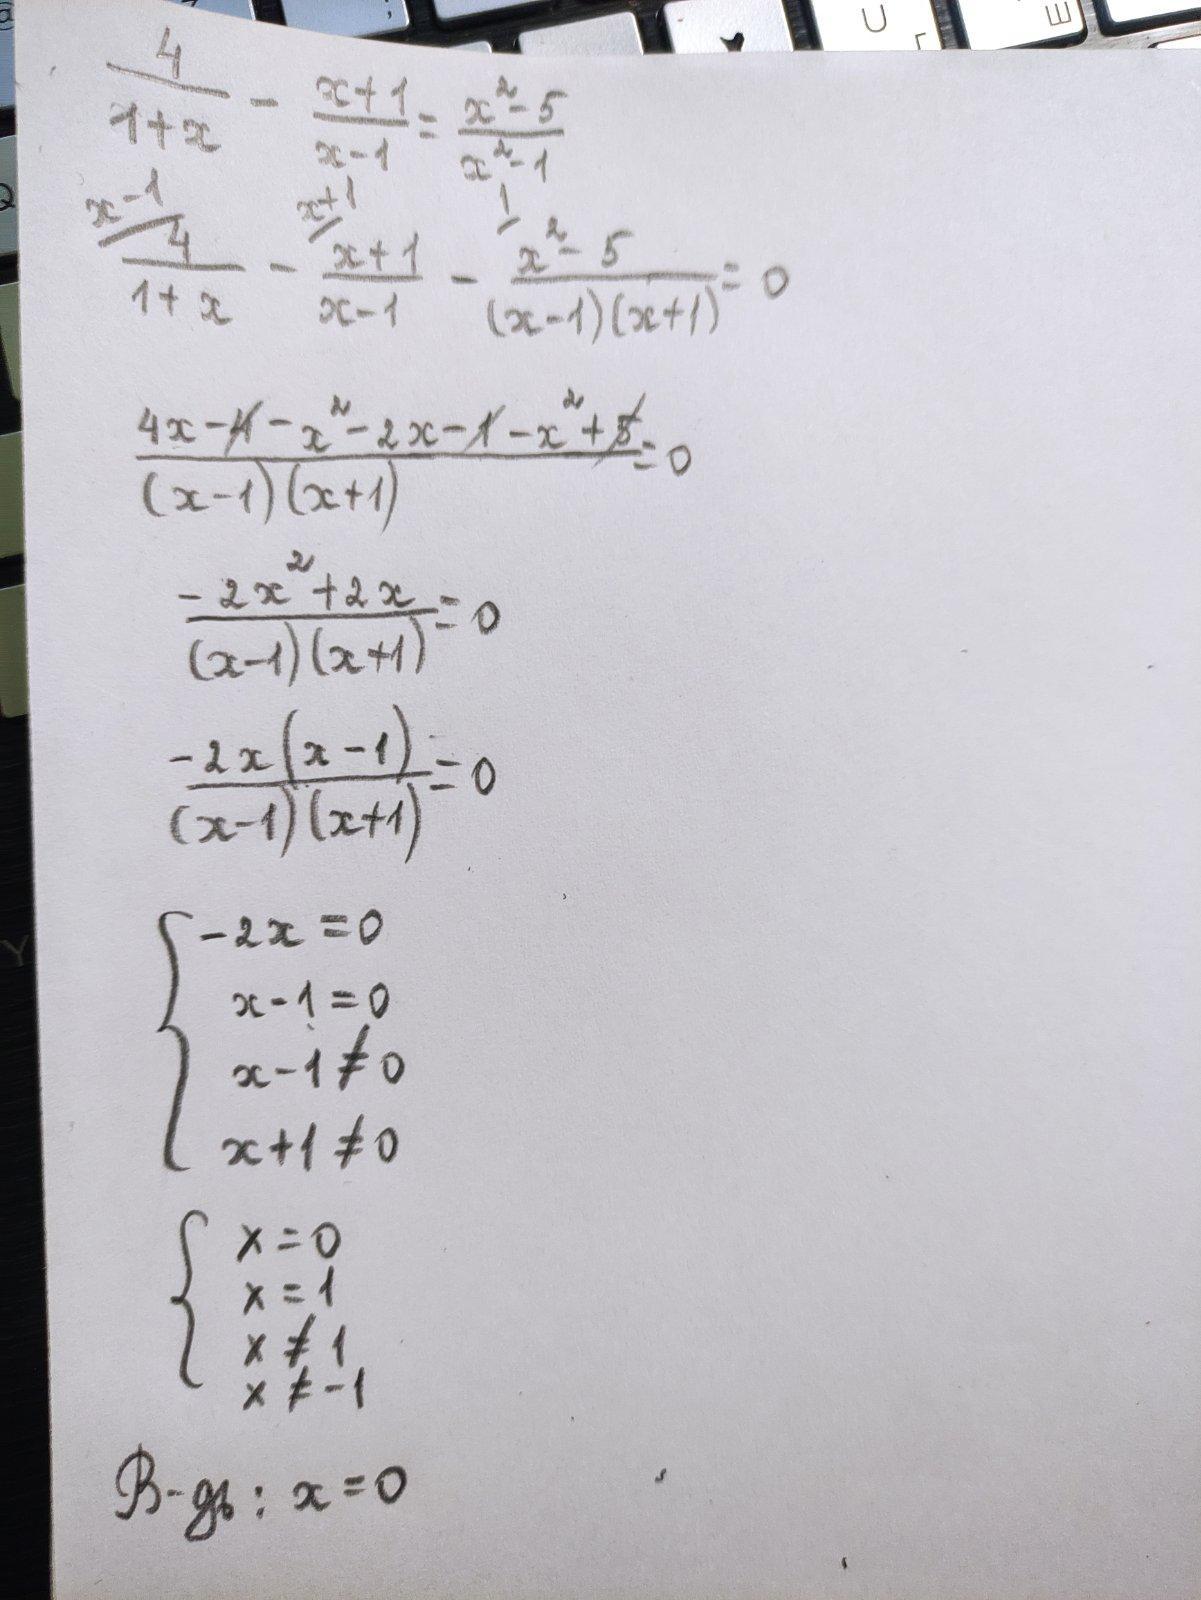 4/(1+x) - (x+1)/(x-1) = (x²-5)/(x²-1)
x-1 x+1 1
4/(1+x) - (x+1)/(x-1) - (x²-5)/((x-1)(x+1)) = 0
(4x-4-x²-2x-1-x²+5)/((x-1)(x+1)) = 0
(-2x²+2x)/((x-1)(x+1)) = 0
(-2x(x-1))/((x-1)(x+1)) = 0
{ -2x = 0
x-1 = 0
x-1 ≠ 0
x+1 ≠ 0
{ x = 0
x = 1
x ≠ 1
x ≠ -1
В-дь: x = 0